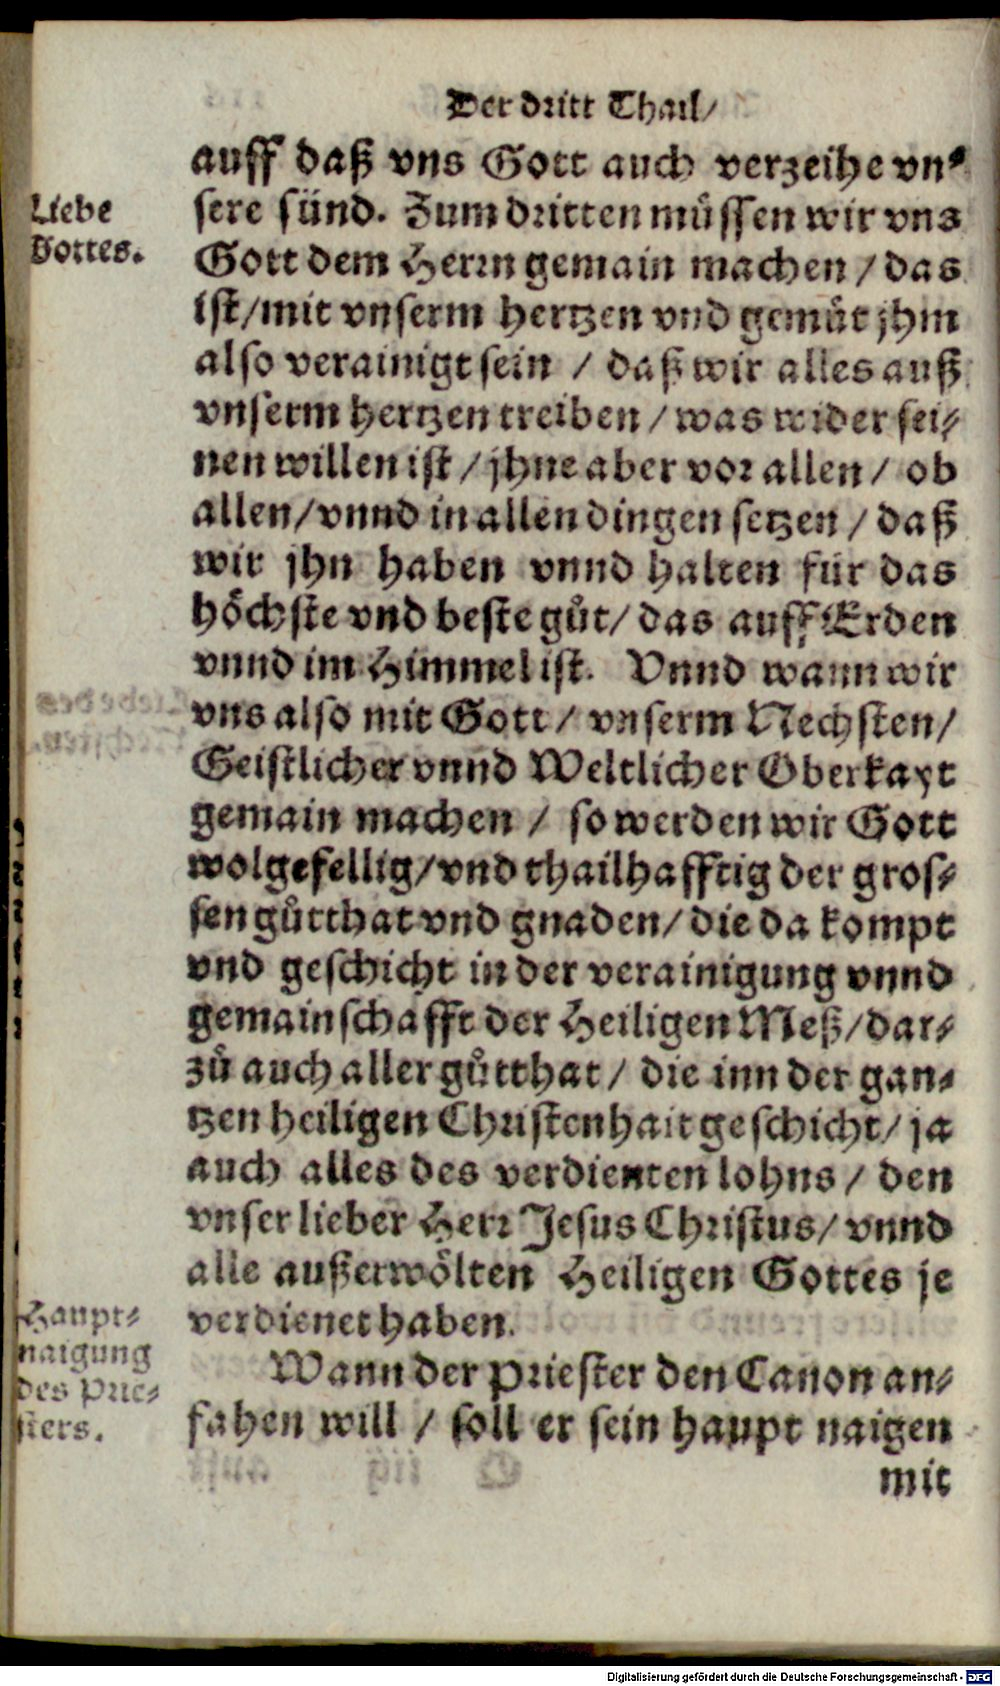 Der dritt Thail/
auff daß vns Gott auch verzeihe vn⸗
Liebe
Gottes.
sere sünd. Zum dritten müssen wir vns
Gott dem Herrn gemain machen / das
ist/mit vnserm hertzen vnd gemüt jhm
also verainigt sein / daß wir alles auß
vnserm hertzen treiben / was wider sei⸗
nen willen ist / jhne aber vor allen / ob
allen/vnnd in allen dingen setzen / daß
wir jhn haben vnnd halten für das
höchste vnd beste gůt/ das auff Erden
vnnd im Himmel ist. Vnnd wann wir
vns also mit Gott / vnserm Nechsten/
Geistlicher vnnd Weltlicher Oberkayt
gemain machen / so werden wir Gott
wolgefellig/vnd thailhafftig der gros⸗
sen gůtthat vnd gnaden/ die da kompt
vnd geschicht in der verainigung vnnd
gemainschafft der Heiligen Meß/dar⸗
zů auch aller gůtthat / die inn der gan⸗
tzen heiligen Christenhait geschicht/ ja
auch alles des verdienten lohns / den
vnser lieber Herr Jesus Christus/ vnnd
alle außerwölten Heiligen Gottes je
verdienet haben.
Haupt⸗
naigung
des Prie⸗
sters.
Wann der Priester den Canon an⸗
fahen will / soll er sein haupt naigen
mit
Digitalisierung gefördert durch die Deutsche Forschungsgemeinschaft - DFG